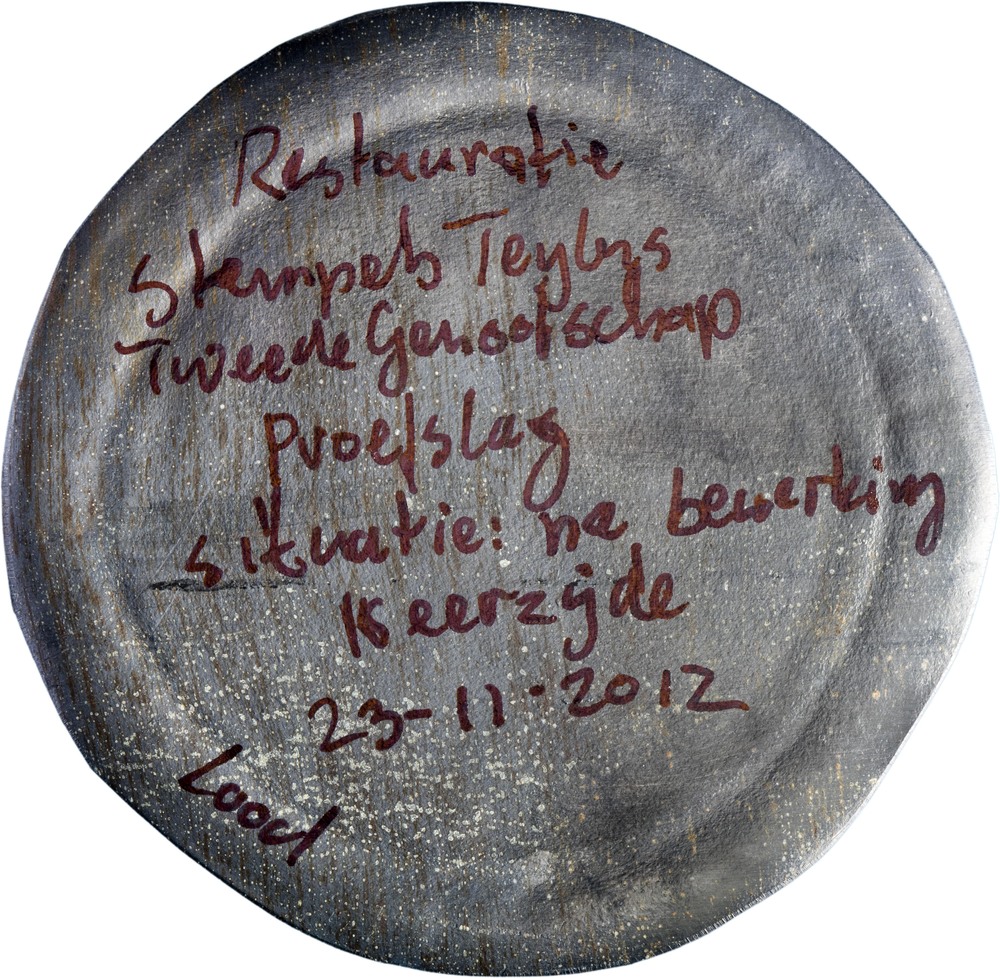 Restauratie
Stempels Teylers
Tweede Genootschap
proefslag
situatie: na bewerking
Keerzijde
23-11-2012
Lood